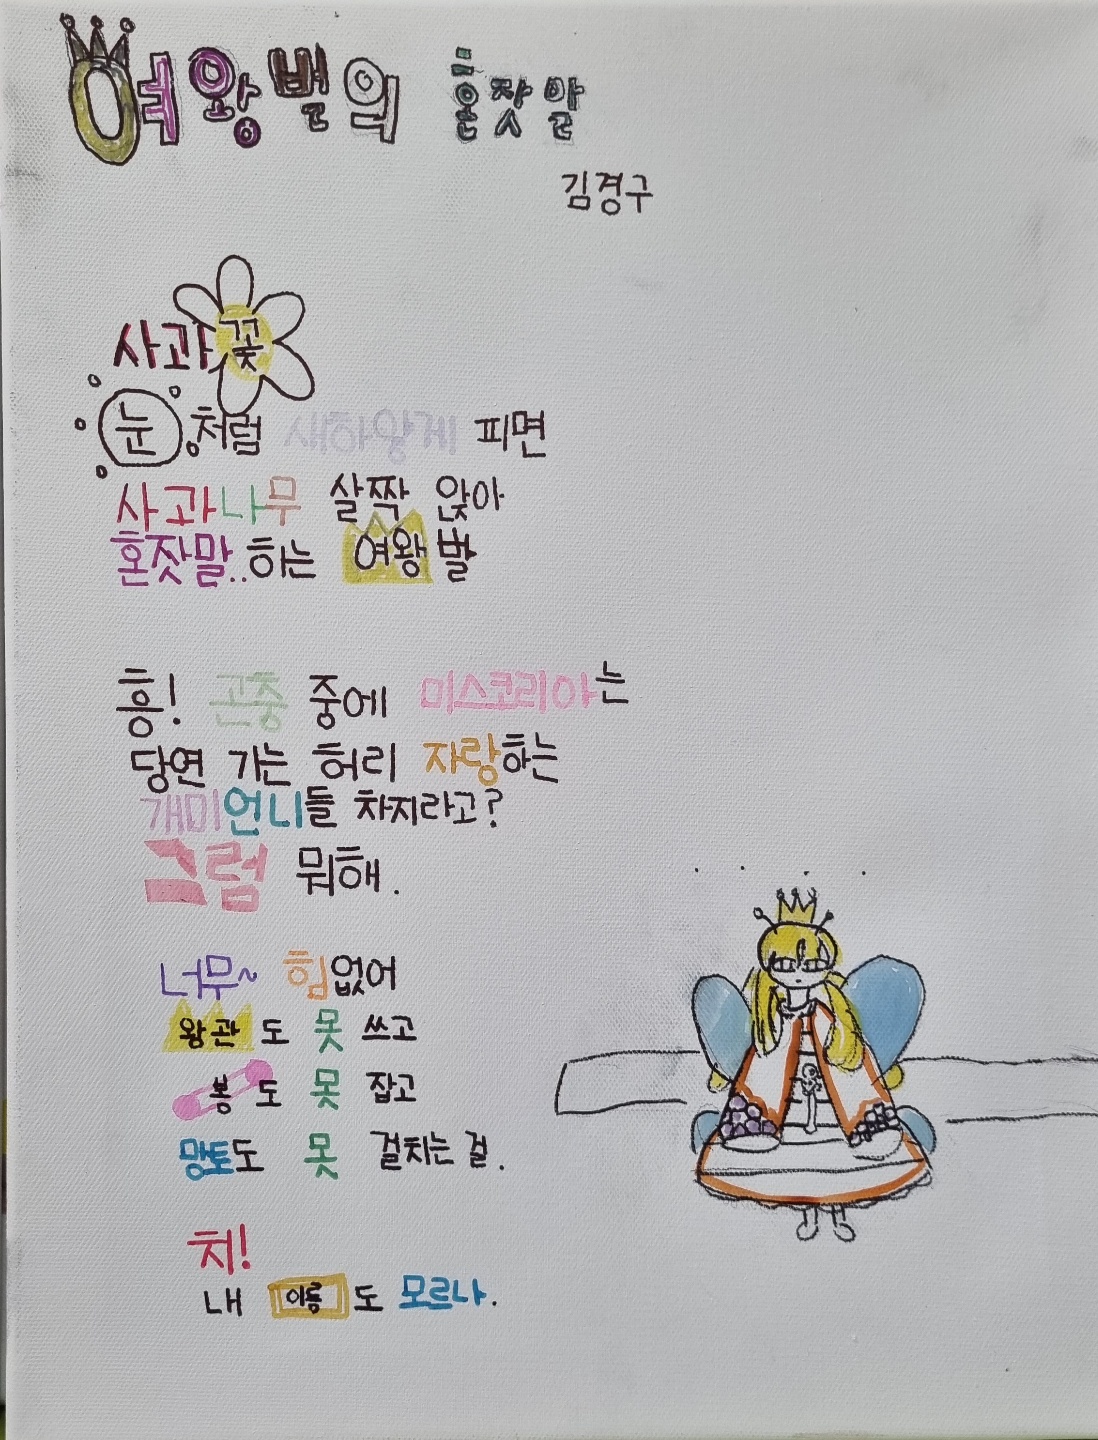 여왕벌의 혼잣말
김경구
사과꽃
눈처럼 새하얗게 피면
사과나무 살짝 앉아
혼잣말..하는 여왕벌
흥! 곤충 중에 미스코리아는
당연 가는 허리 자랑하는
개미언니들 차지라고?
그럼 뭐해.
너무~ 힘없어
왕관도 못 쓰고
봉도 못 잡고
망토도 못 걸치는 걸.
치!
내 이름도 모르나.